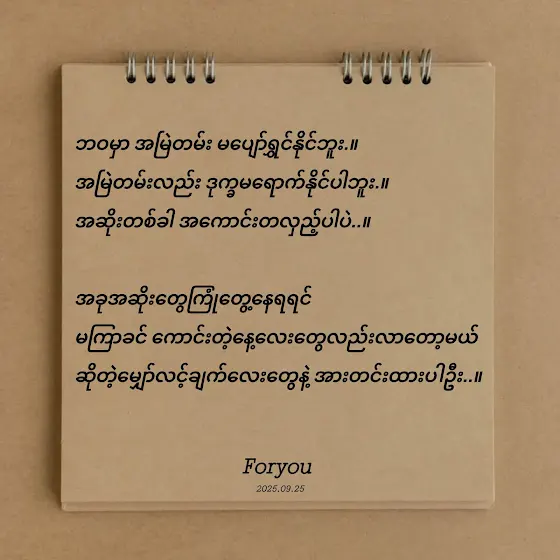 ဘဝမှာ အမြဲတမ်း မပျော်ရွှင်နိုင်ဘူး.။
အမြဲတမ်းလည်း ဒုက္ခမရောက်နိုင်ပါဘူး.။
အဆိုးတစ်ခါ အကောင်းတလှည့်ပါပဲ..။
အခုအဆိုးတွေကြုံတွေ့နေရရင်
မကြာခင် ကောင်းတဲ့နေ့လေးတွေလည်းလာတော့မယ်
ဆိုတဲ့မျှော်လင့်ချက်လေးတွေနဲ့ အားတင်းထားပါဦး..။
Foryou
2025.09.25